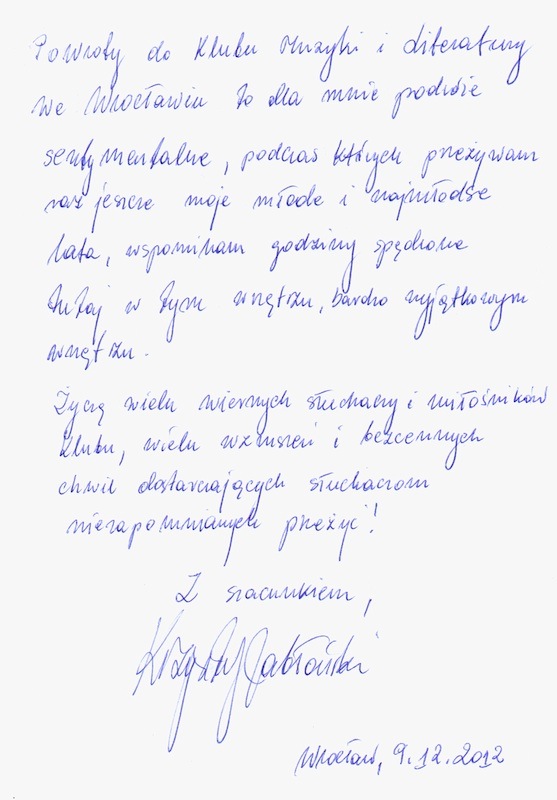 Powroty do Klubu Muzyki i Literatury
we Wrocławiu to dla mnie podróże
sentymentalne, podczas których przeżywam
raz jeszcze moje młode i najmłodsze
lata, wspominam godziny spędzone
tutaj w tym wnętrzu, bardzo wyjątkowym
wnętrzu.
Życzę wielu wiernych słuchaczy i miłośników
Klubu, wielu wzruszeń i bezcennych
chwil dostarczających słuchaczom
niezapomnianych przeżyć!
Z szacunkiem,
Krzysztof Jabłoński
Wrocław, 9.12.2012